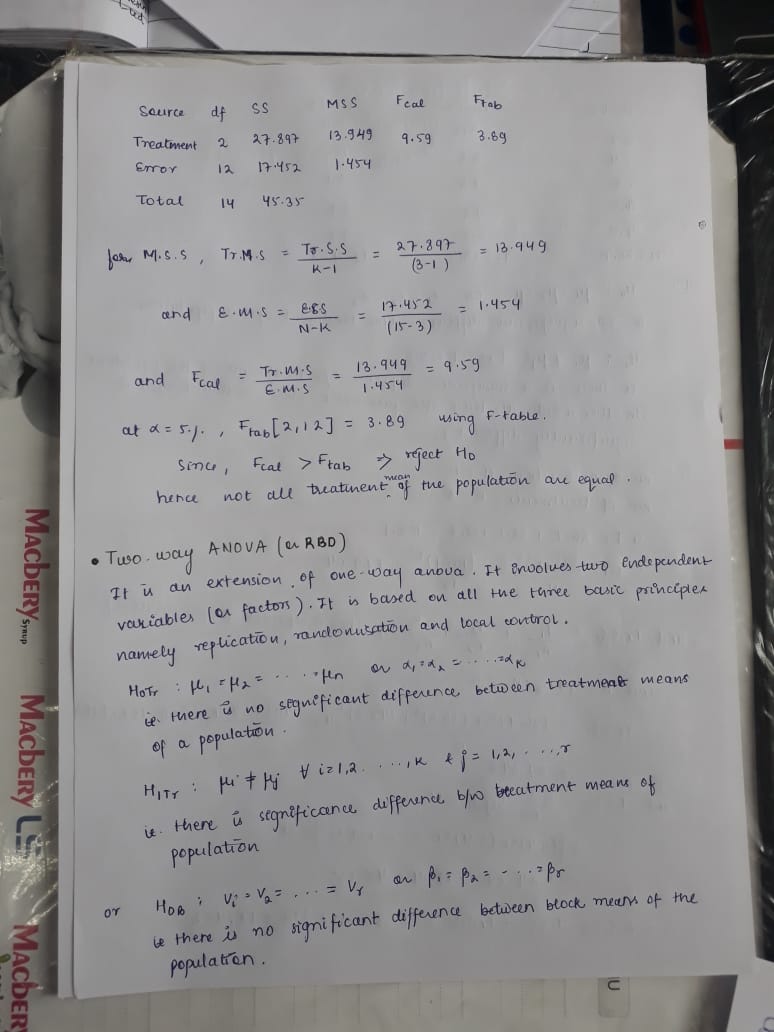 Source df SS MSS Fcal Ftab
Treatment 2 27.897 13.949 9.59 3.89
Error 12 17.452 1.454
Total 14 45.35
for M.S.S , Tr.M.S = Tr.S.S / K-1 = 27.897 / (3-1) = 13.949
and E.M.S = ESS / N-K = 17.452 / (15-3) = 1.454
and Fcal = Tr.M.S / E.M.S = 13.949 / 1.454 = 9.59
at α = 5.%. , Ftab[2,12] = 3.89 using F-table.
Since, Fcal > Ftab ⇒ reject H0
hence not all treatment mean of the population are equal.
• Two-way ANOVA (or RBD)
It is an extension of one-way anova. It involves two independent
variables (or factors). It is based on all the three basic principles
namely replication, randomisation and local control.
H0Tr : μ1 = μ2 = ..... = μn or α1 = α2 = ..... = αK
ie. there is no significant difference between treatment means
of a population.
H1Tr : μi ≠ μj ∀ i=1,2. ...,K & j = 1,2, ...,r
ie. there is significance difference b/w treatment means of
population
or H0B : Vi = V2 = ... = Vr or β1 = β2 = - ... = βr
ie there is no significant difference between block means of the
population.
MACBERY SYRUP
MACBERY LS
MACBERY